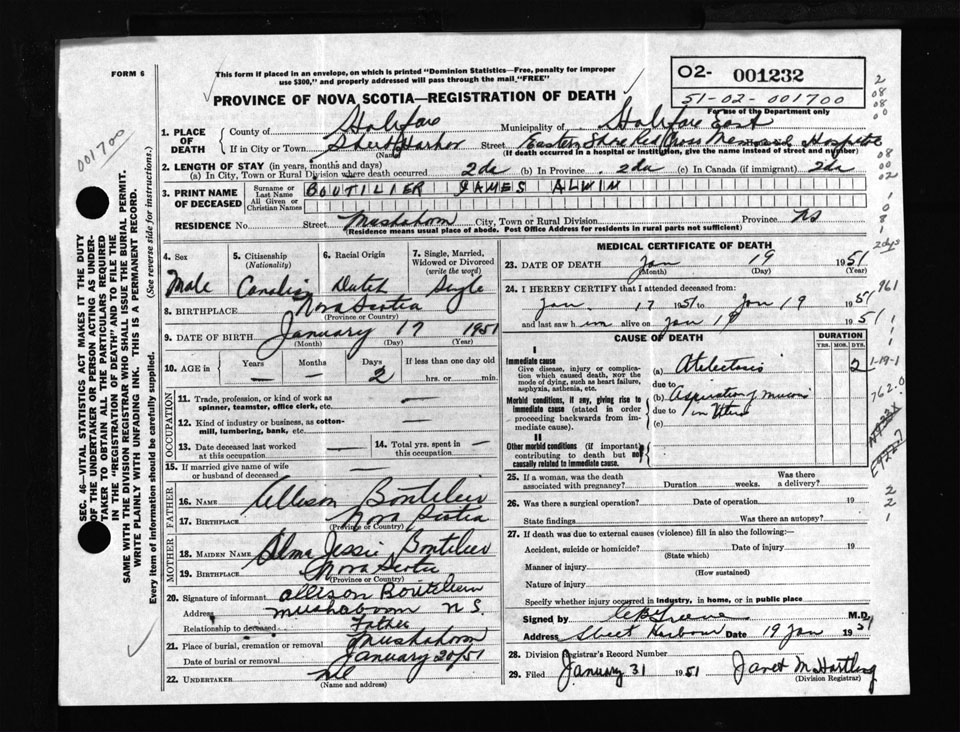 FORM 6
This form if placed in an envelope, on which is printed "Dominion Statistics—Free, penalty for improper
use $300," and properly addressed will pass through the mail, "FREE"
PROVINCE OF NOVA SCOTIA—REGISTRATION OF DEATH
O2- 001232
51-02-001700
For use of the Department only
001700
1. PLACE OF DEATH
County of Halifax Municipality of Halifax East
If in City or Town Sheet Harbor Street Eastern Shore Red Cross Memorial Hospital
(Name) (If death occurred in a hospital or institution, give the name instead of street and number)
2. LENGTH OF STAY (in years, months and days)
(a) In City, Town or Rural Division where death occurred 2da (b) In Province 2da (c) In Canada (if immigrant) 2da
3. PRINT NAME OF DECEASED
Surname or Last Name BOUTILIER JAMES ALWIN
All Given or Christian Names
RESIDENCE No. Street Mushaboom City, Town or Rural Division Province NS
(Residence means usual place of abode. Post Office Address for residents in rural parts not sufficient)
4. Sex
Male
5. Citizenship (Nationality)
Canadian
6. Racial Origin
Dutch
7. Single, Married, Widowed or Divorced (write the word)
Single
8. BIRTHPLACE Nova Scotia
(Province or Country)
9. DATE OF BIRTH January 17 1951
(Month) (Day) (Year)
10. AGE in Years — Months — Days 2 If less than one day old hrs. or min.
OCCUPATION
11. Trade, profession, or kind of work as spinner, teamster, office clerk, etc. —
12. Kind of industry or business, as cotton-mill, lumbering, bank, etc. —
13. Date deceased last worked at this occupation —
14. Total yrs. spent in this occupation —
15. If married give name of wife or husband of deceased —
FATHER
16. NAME Allison Boutilier
17. BIRTHPLACE Nova Scotia
(Province or Country)
MOTHER
18. MAIDEN NAME Alma Jessie Boutilier
19. BIRTHPLACE Nova Scotia
(Province or Country)
20. Signature of informant Allison Boutilier
Address Mushaboom N S.
Relationship to deceased Father
21. Place of burial, cremation or removal Mushaboom
Date of burial or removal January 20/51
22. UNDERTAKER Nil
(Name and address)
MEDICAL CERTIFICATE OF DEATH
23. DATE OF DEATH Jan 19 1951
(Month) (Day) (Year)
24. I HEREBY CERTIFY that I attended deceased from:
Jan 17 1951 to Jan 19 1951
and last saw him alive on Jan 19 1951
CAUSE OF DEATH
DURATION
YRS. MOS. DYS.
I
Immediate cause
Give disease, injury or complication which caused death, NOT the mode of dying, such as heart failure, asphyxia, asthenia, etc.
(a) Atelectasis 2
due to
Morbid conditions, if any, giving rise to immediate cause (stated in order proceeding backwards from immediate cause).
(b) Aspiration of mucous
due to in Utero
(c)
II
Other morbid conditions (if important) contributing to death but not causally related to immediate cause.
25. If a woman, was the death associated with pregnancy? Duration weeks. Was there a delivery?
26. Was there a surgical operation? Date of operation 19
State findings Was there an autopsy?
27. If death was due to external causes (violence) fill in also the following:
Accident, suicide or homicide? Date of injury 19
(State which)
Manner of injury
(How sustained)
Nature of injury
Specify whether injury occurred in industry, in home, or in public place
Signed by M.D.
Address Sheet Harbour Date 19 Jan 1951
28. Division Registrar's Record Number
29. Filed January 31 1951 Janet M Hartling
(Division Registrar)
SEC. 46—VITAL STATISTICS ACT MAKES IT THE DUTY
OF THE UNDERTAKER OR PERSON ACTING AS UNDER-
TAKER TO OBTAIN ALL THE PARTICULARS REQUIRED
IN THE "REGISTRATION OF DEATH" AND TO FILE THE
SAME WITH THE DIVISION REGISTRAR WHO SHALL ISSUE THE BURIAL PERMIT.
WRITE PLAINLY WITH UNFADING INK. THIS IS A PERMANENT RECORD.
Every item of information should be carefully supplied. (See reverse side for instructions.)
2
08
08
00
02
2dys
961
1-19-1
762.0
2
2
1